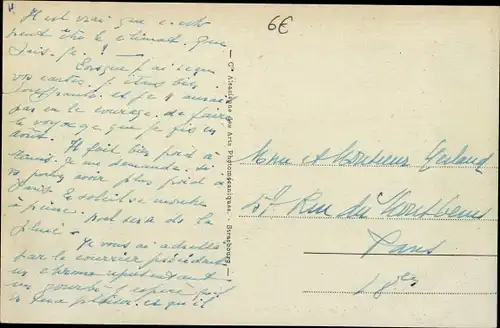 Il est vrai que c'est
peut être le climat. Que
sais-je ! —
Lorsque j'ai reçu
vos cartes j'étais bien
souffrante et je n'aurais
pas eu le courage de faire
le voyage que je fis en
août.
Il fait bien froid à
je me demande si
vs pouvez avoir plus froid à
Paris. Le soleil se montre
à peine. pluie.
Je vous ai adressé
par le courrier précédent
un chromo représentant
un gourbi. J'espère qu'il
vs fera plaisir, ce qu'il
6€
— Cie Alsacienne des Arts Photomécaniques - Strasbourg —
Mme et Monsieur
Rue du
Paris
18e